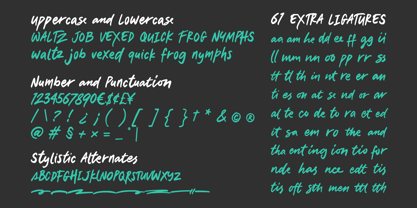 uppercase and Lowercase
WALTZ JOB VEXED QUICK FROG NYMPHS
waltz job vexed quick frog nymphs
Number and Punctuation
1234567890€$¢£¥
/ \ ? ! ¿ ¡ ( ) [ ] { } † * & © ®
@ # § + × = _
Stylistic Alternates
ABCDFGHIJKLNOPQRSTUVWXYZ
67 EXTRA LIGATURES
aa am he dd ee ff gg ii
ll mm nn oo pp rr ss
tt tl th in nt re er an
ti es on at se nd or ar
al te co de to ra et ed
it sa em ro the and
tha ent ing ion tio for
nde has nce edt tis
tis oft sth men ttl tth